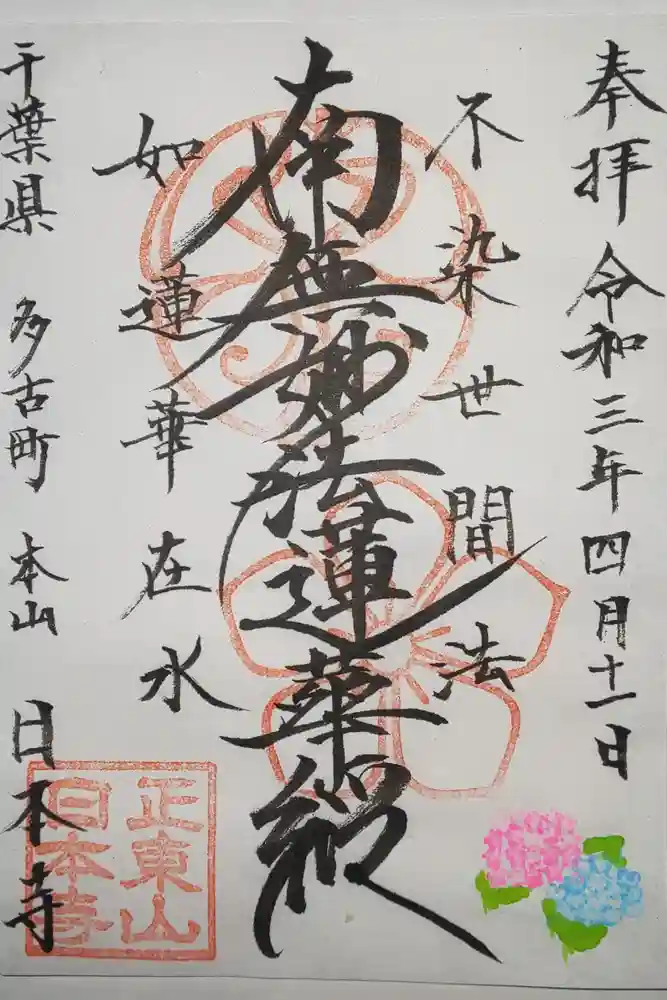 奉拝 令和三年四月十一日
不染世間法
南無妙法蓮華経
如蓮華在水
千葉県 多古町 本山 日本寺
正東山
日本寺